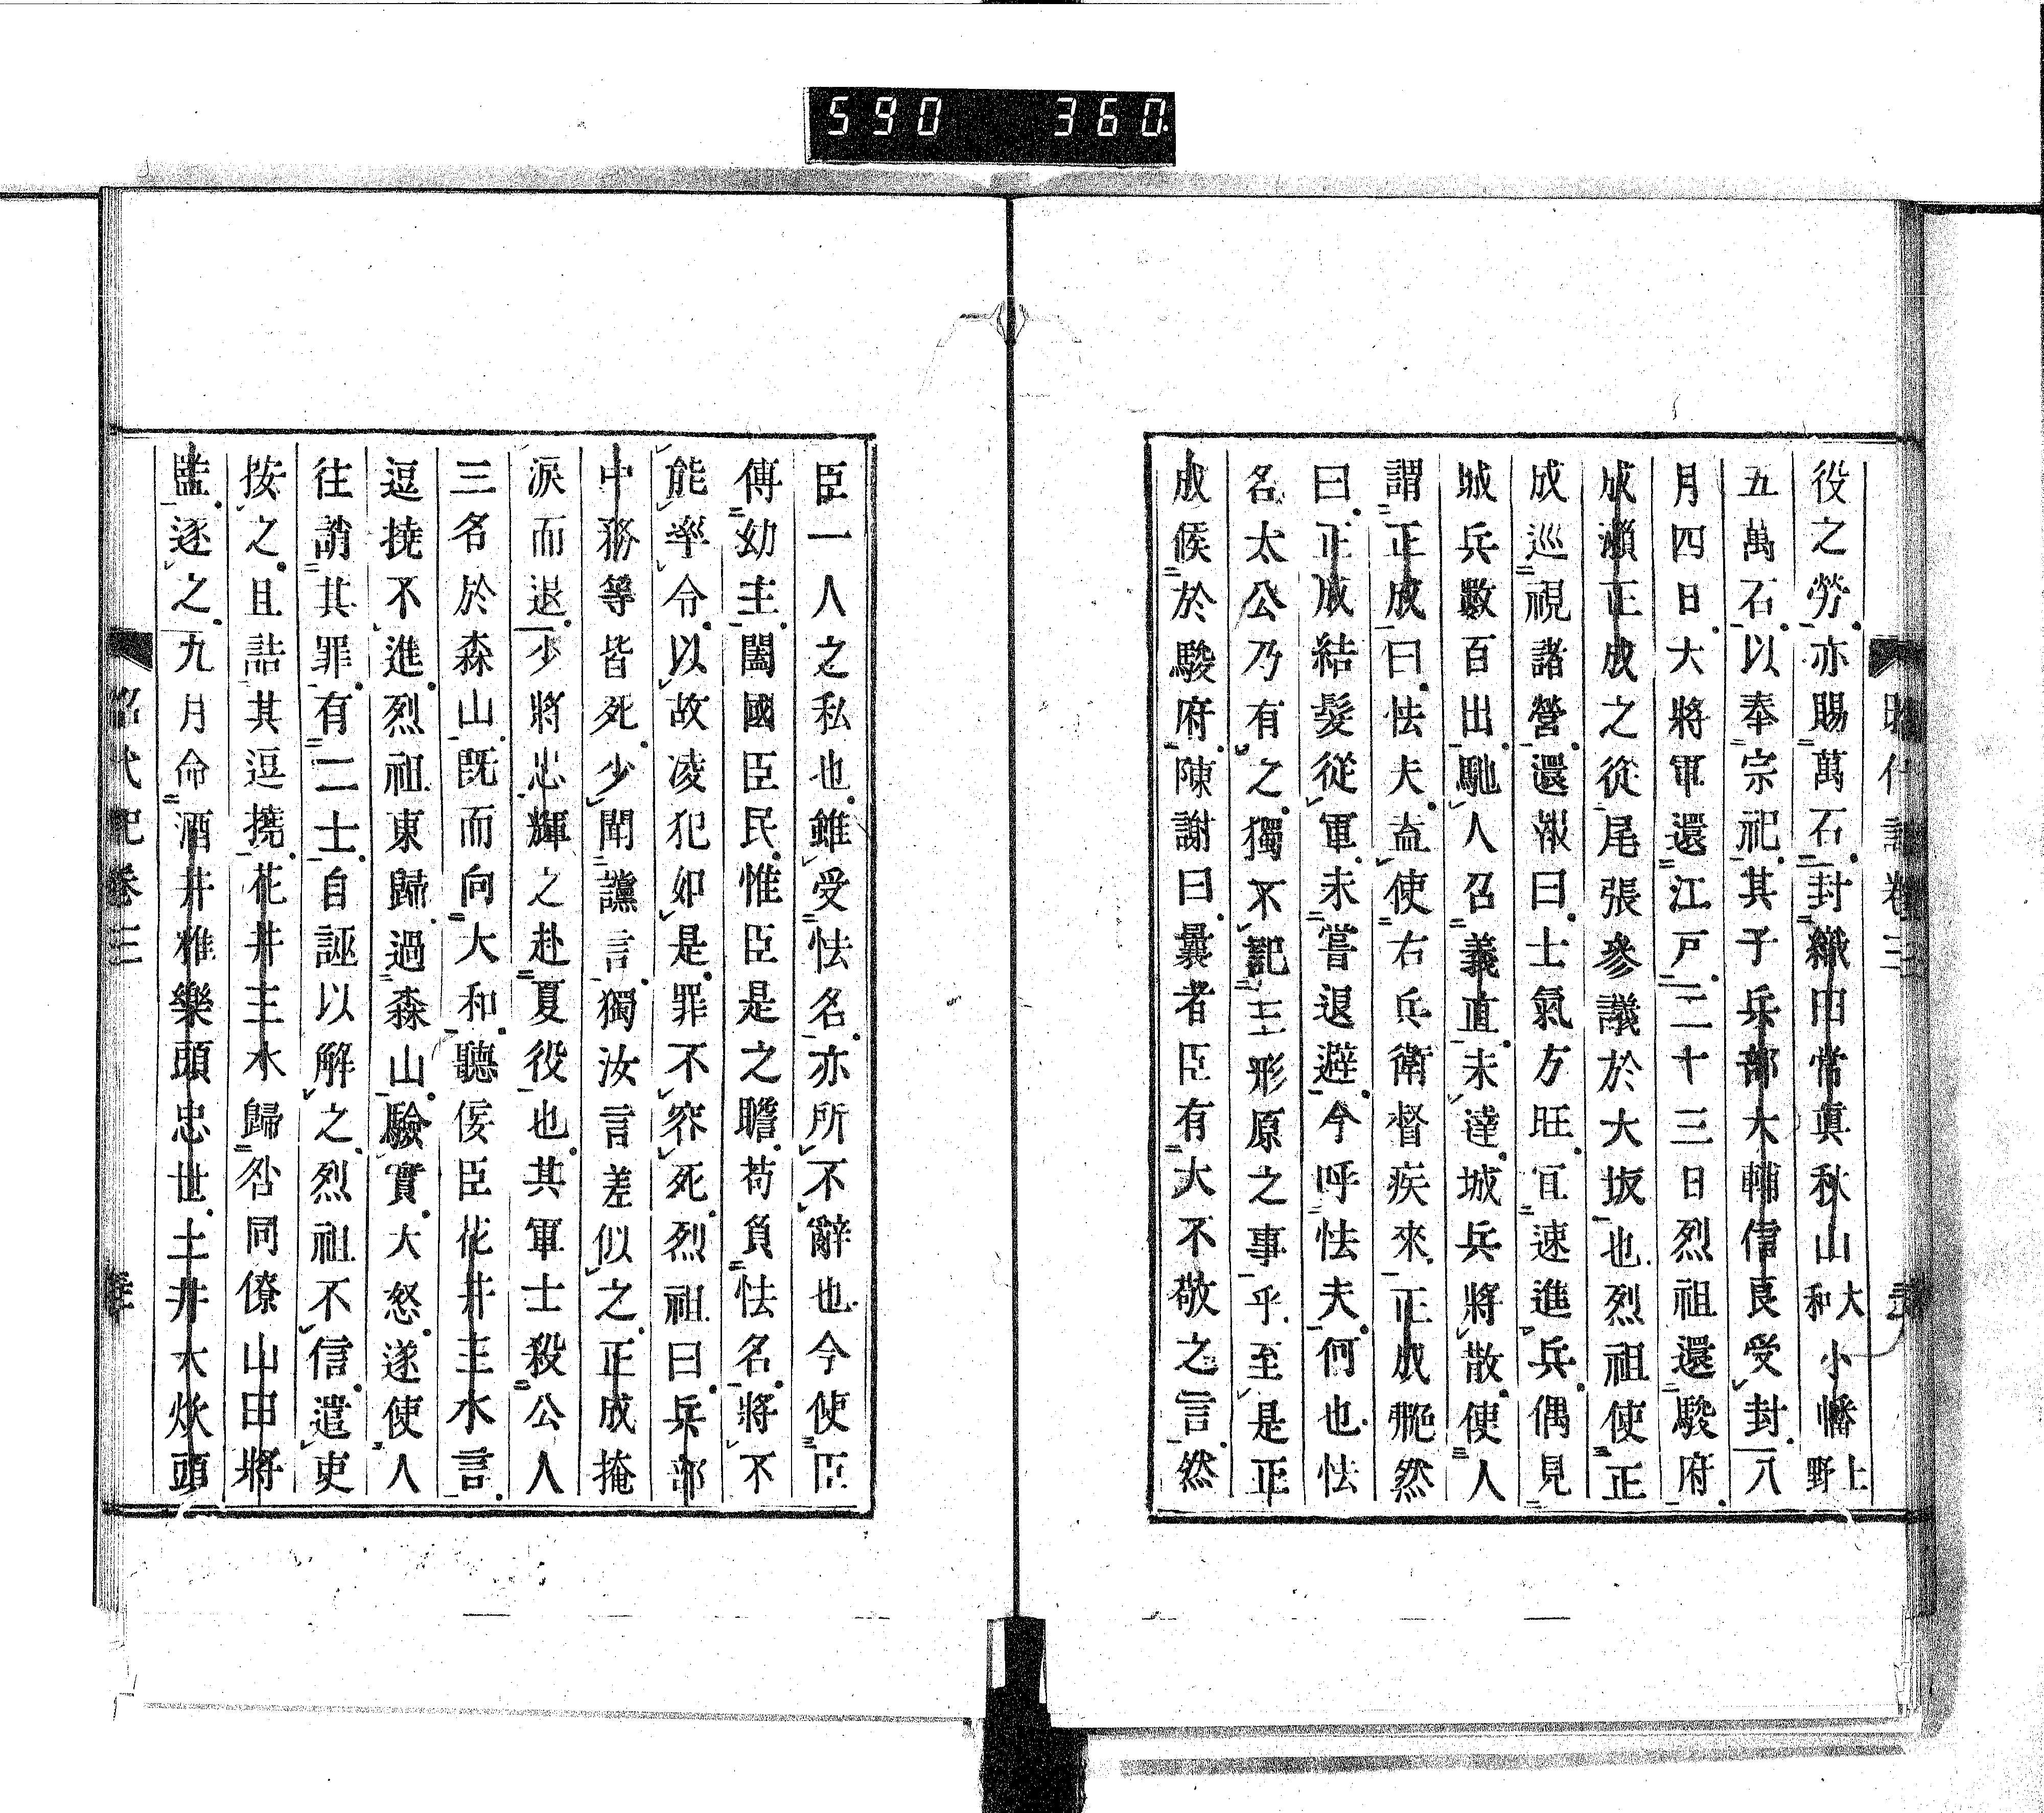 590 360.
昭代記卷三
役之勞亦賜萬石封織田常眞秋山大和小幡上野
五萬石以奉宗祀其子兵部大輔信良受封八
月四日大將軍還江戸二十三日烈祖還駿府
成瀬正成之從尾張參議於大坂也烈祖使正
成巡視諸營還報曰士氣方旺宜速進兵偶見
城兵數百出馳人召義直未達城兵將散使人
謂正成曰怯夫盍使右兵衛督疾來正成艴然
曰正成結髮從軍未嘗退避今呼怯夫何也怯
名太公乃有之獨不記三形原之事乎至是正
成候於駿府陳謝曰曩者臣有大不敬之言然
臣一人之私也雖受怯名亦所不辭也今使臣
傅幼主闔國臣民惟臣是之瞻苟負怯名將不
能率令以故凌犯如是罪不容死烈祖曰兵部
中務等皆死少聞讜言獨汝言差似之正成掩
淚而退少將忠輝之赴夏役也其軍士殺公人
三名於森山既而向大和聽佞臣花井主水言
逗撓不進烈祖東歸過森山驗實大怒遂使人
往誚其罪有二士自誣以解之烈祖不信遣吏
按之且詰其逗撓花井主水歸咎同僚山田將
監逐之九月命酒井雅樂頭忠世土井大炊頭
昭代記卷三